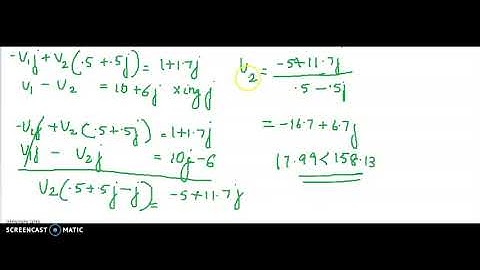 -V₁j + V₂(.5+.5j) = 1+1.7j
V₁ - V₂ = 10+6j xing j
-V₁j + V₂(.5+.5j) = 1+1.7j
V₁j - V₂j = 10j-6
V₂(.5+.5j-j) = -5+11.7j
V₂ = -5+11.7j
.5-.5j
= -16.7+6.7j
17.99<158.13
SCREENCAST MATIC